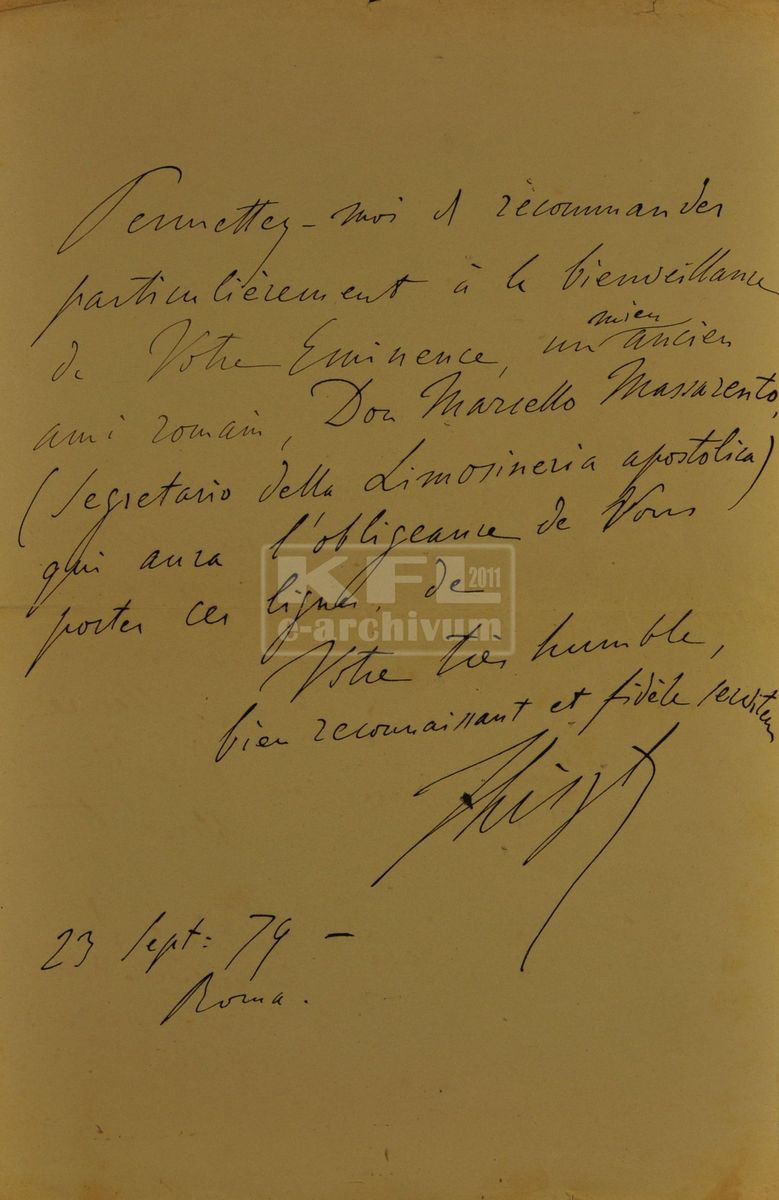 Permettez-moi de recommander
particulièrement à la bienveillance
de Votre Eminence, un mien ancien
ami romain, Don Marcello Massarento,
(Segretario della Limosineria apostolica)
qui aura l'obligeance de Vous
porter ces lignes, de
Votre très humble,
bien reconnaissant et fidèle serviteur
FLiszt
23 Sept: 79 –
Roma.
KFL 2011
e-archivum